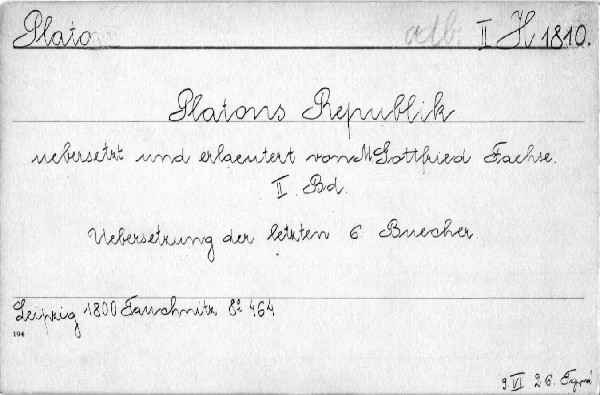 Platon adb. II H 1810.
Platons Republik
uebersetzt und erlaeutert von M Gottfried Faehse.
II. Bd.
Uebersetzung der letzten 6 Buecher.
Leipzig 1800 Tauchnitz 8° 464
194
9 VI. 26.